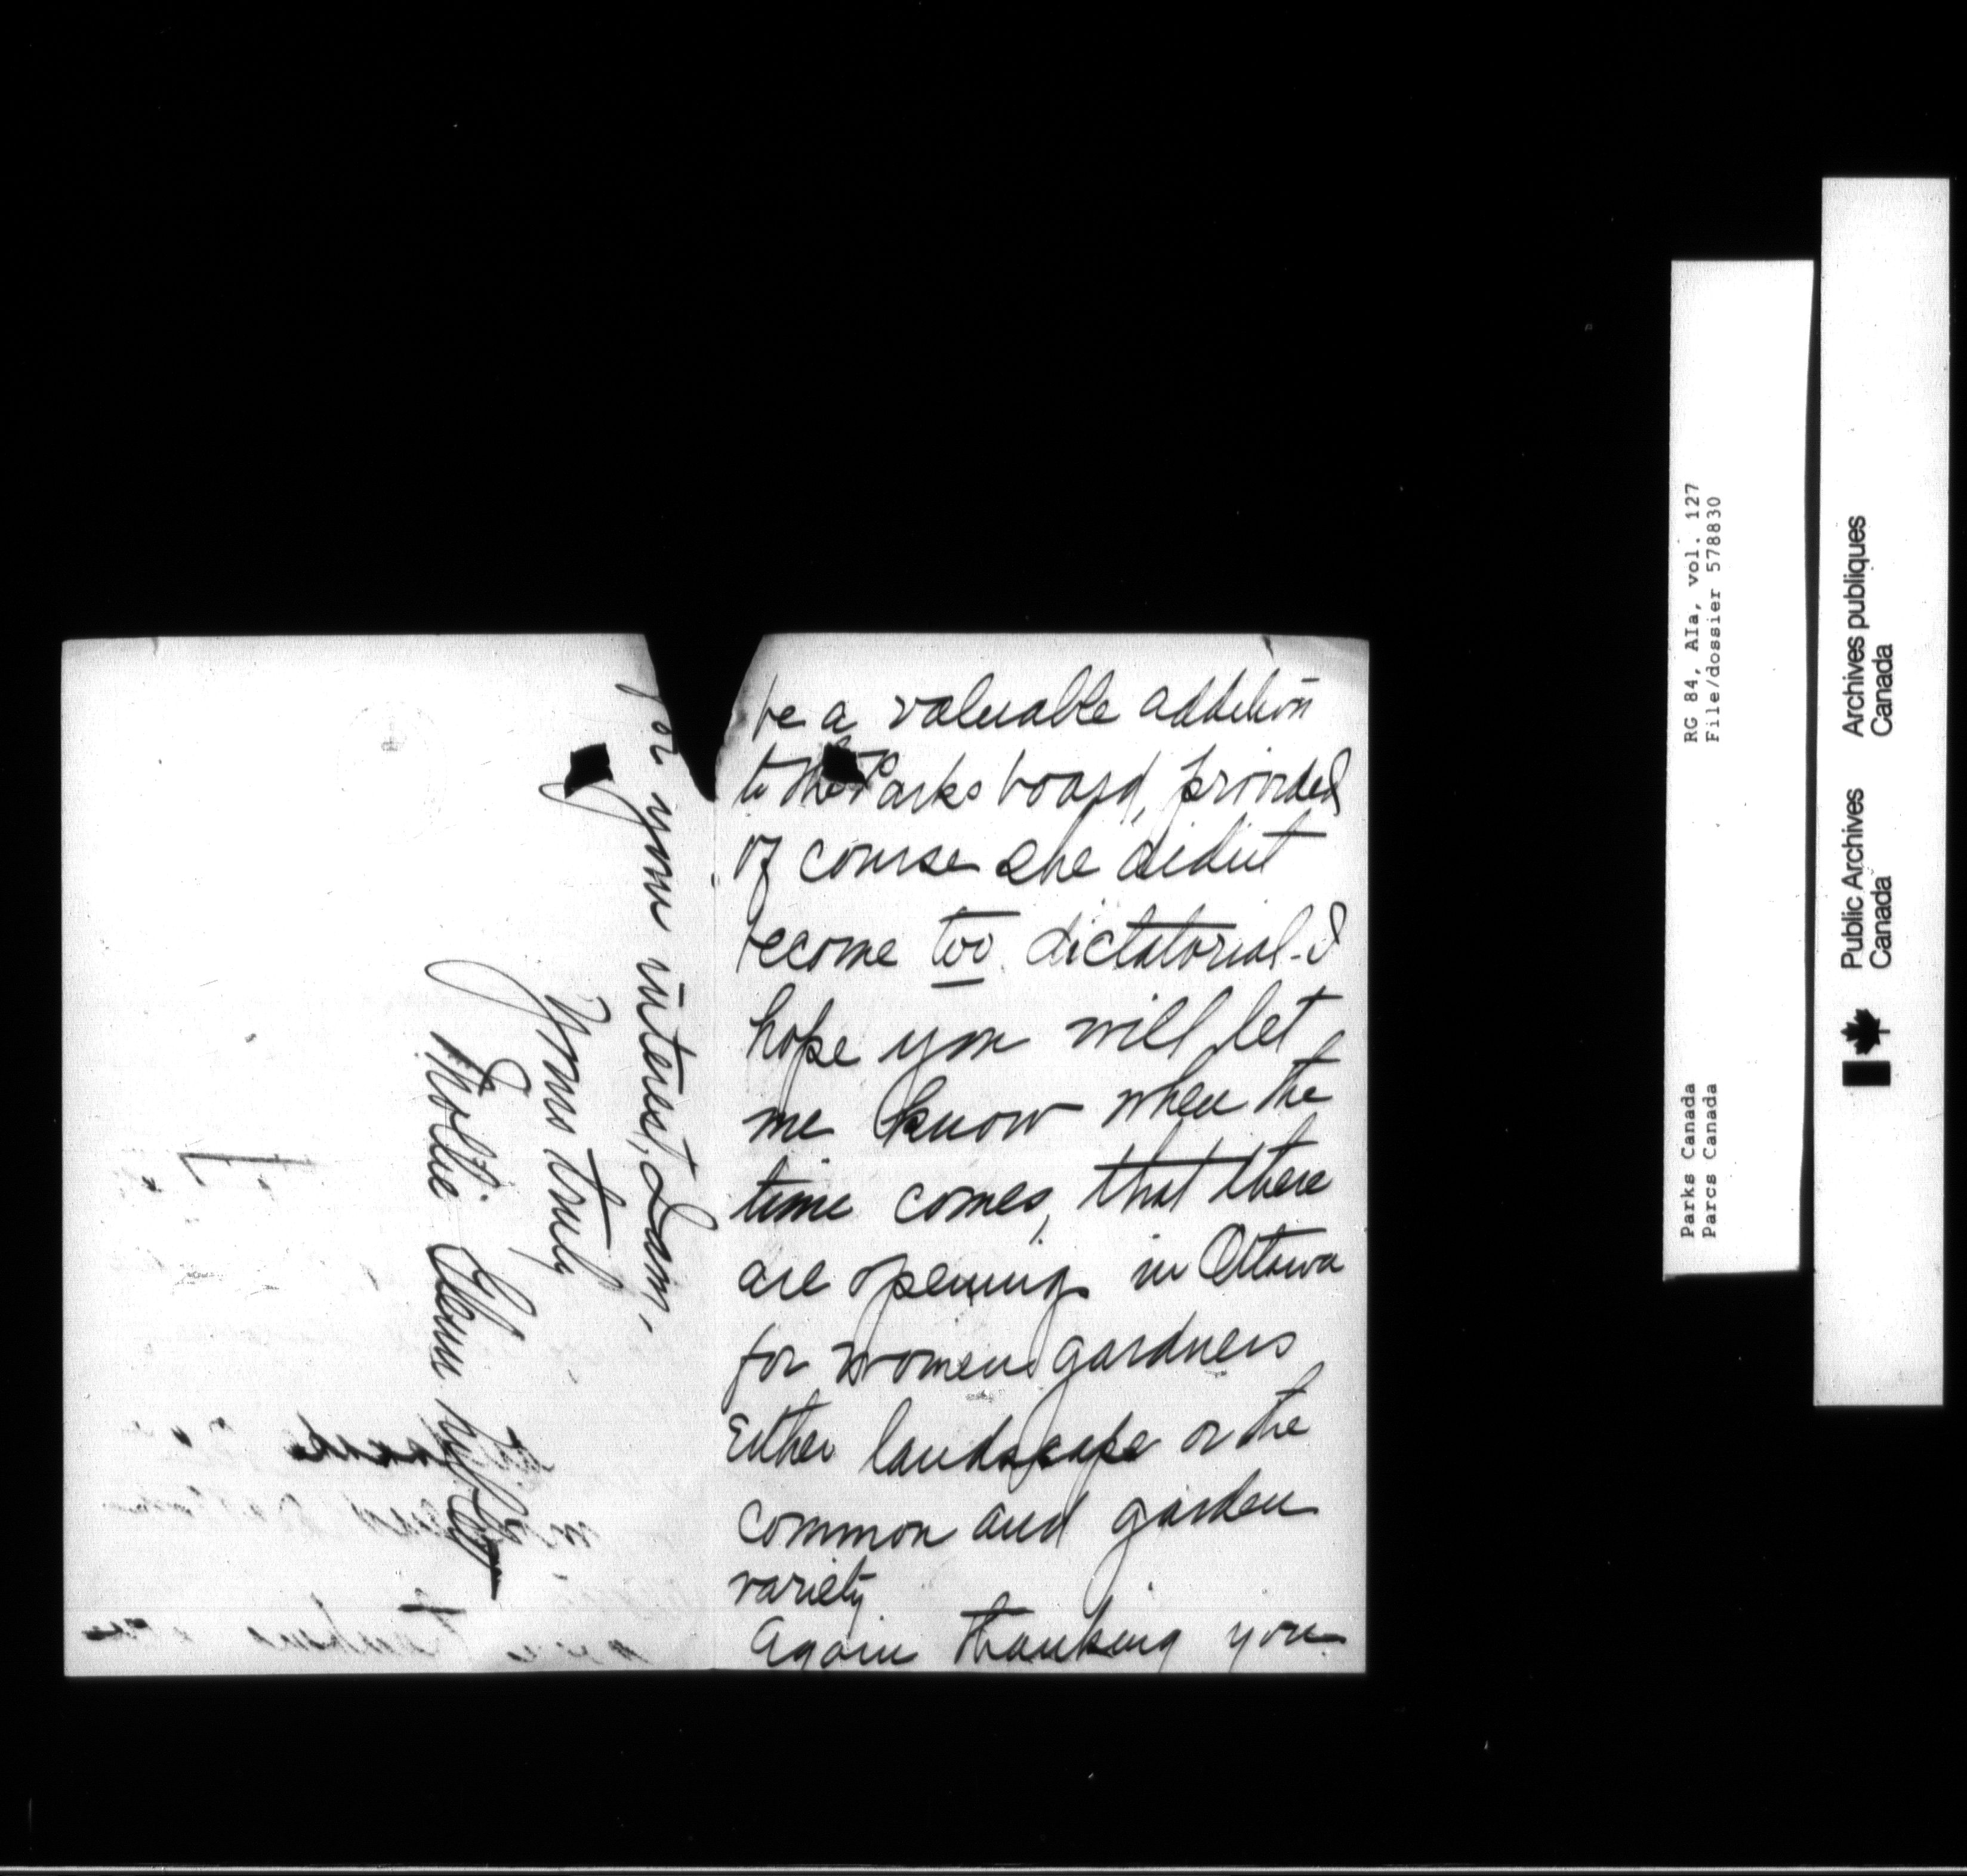 be a valuable addition
to the Parks board, provided
of course she didn't
become too dictatorial - I
hope you will let
me know when the
time comes, that there
are openings in Ottawa
for women gardners
Either landscape or the
common and garden
variety
Again thanking you
for your interest, I am,
Yours truly
Mollie
RG 84, AIa, vol. 127
File/dossier 578830
Parks Canada
Parcs Canada
Public Archives
Canada
Archives publiques
Canada